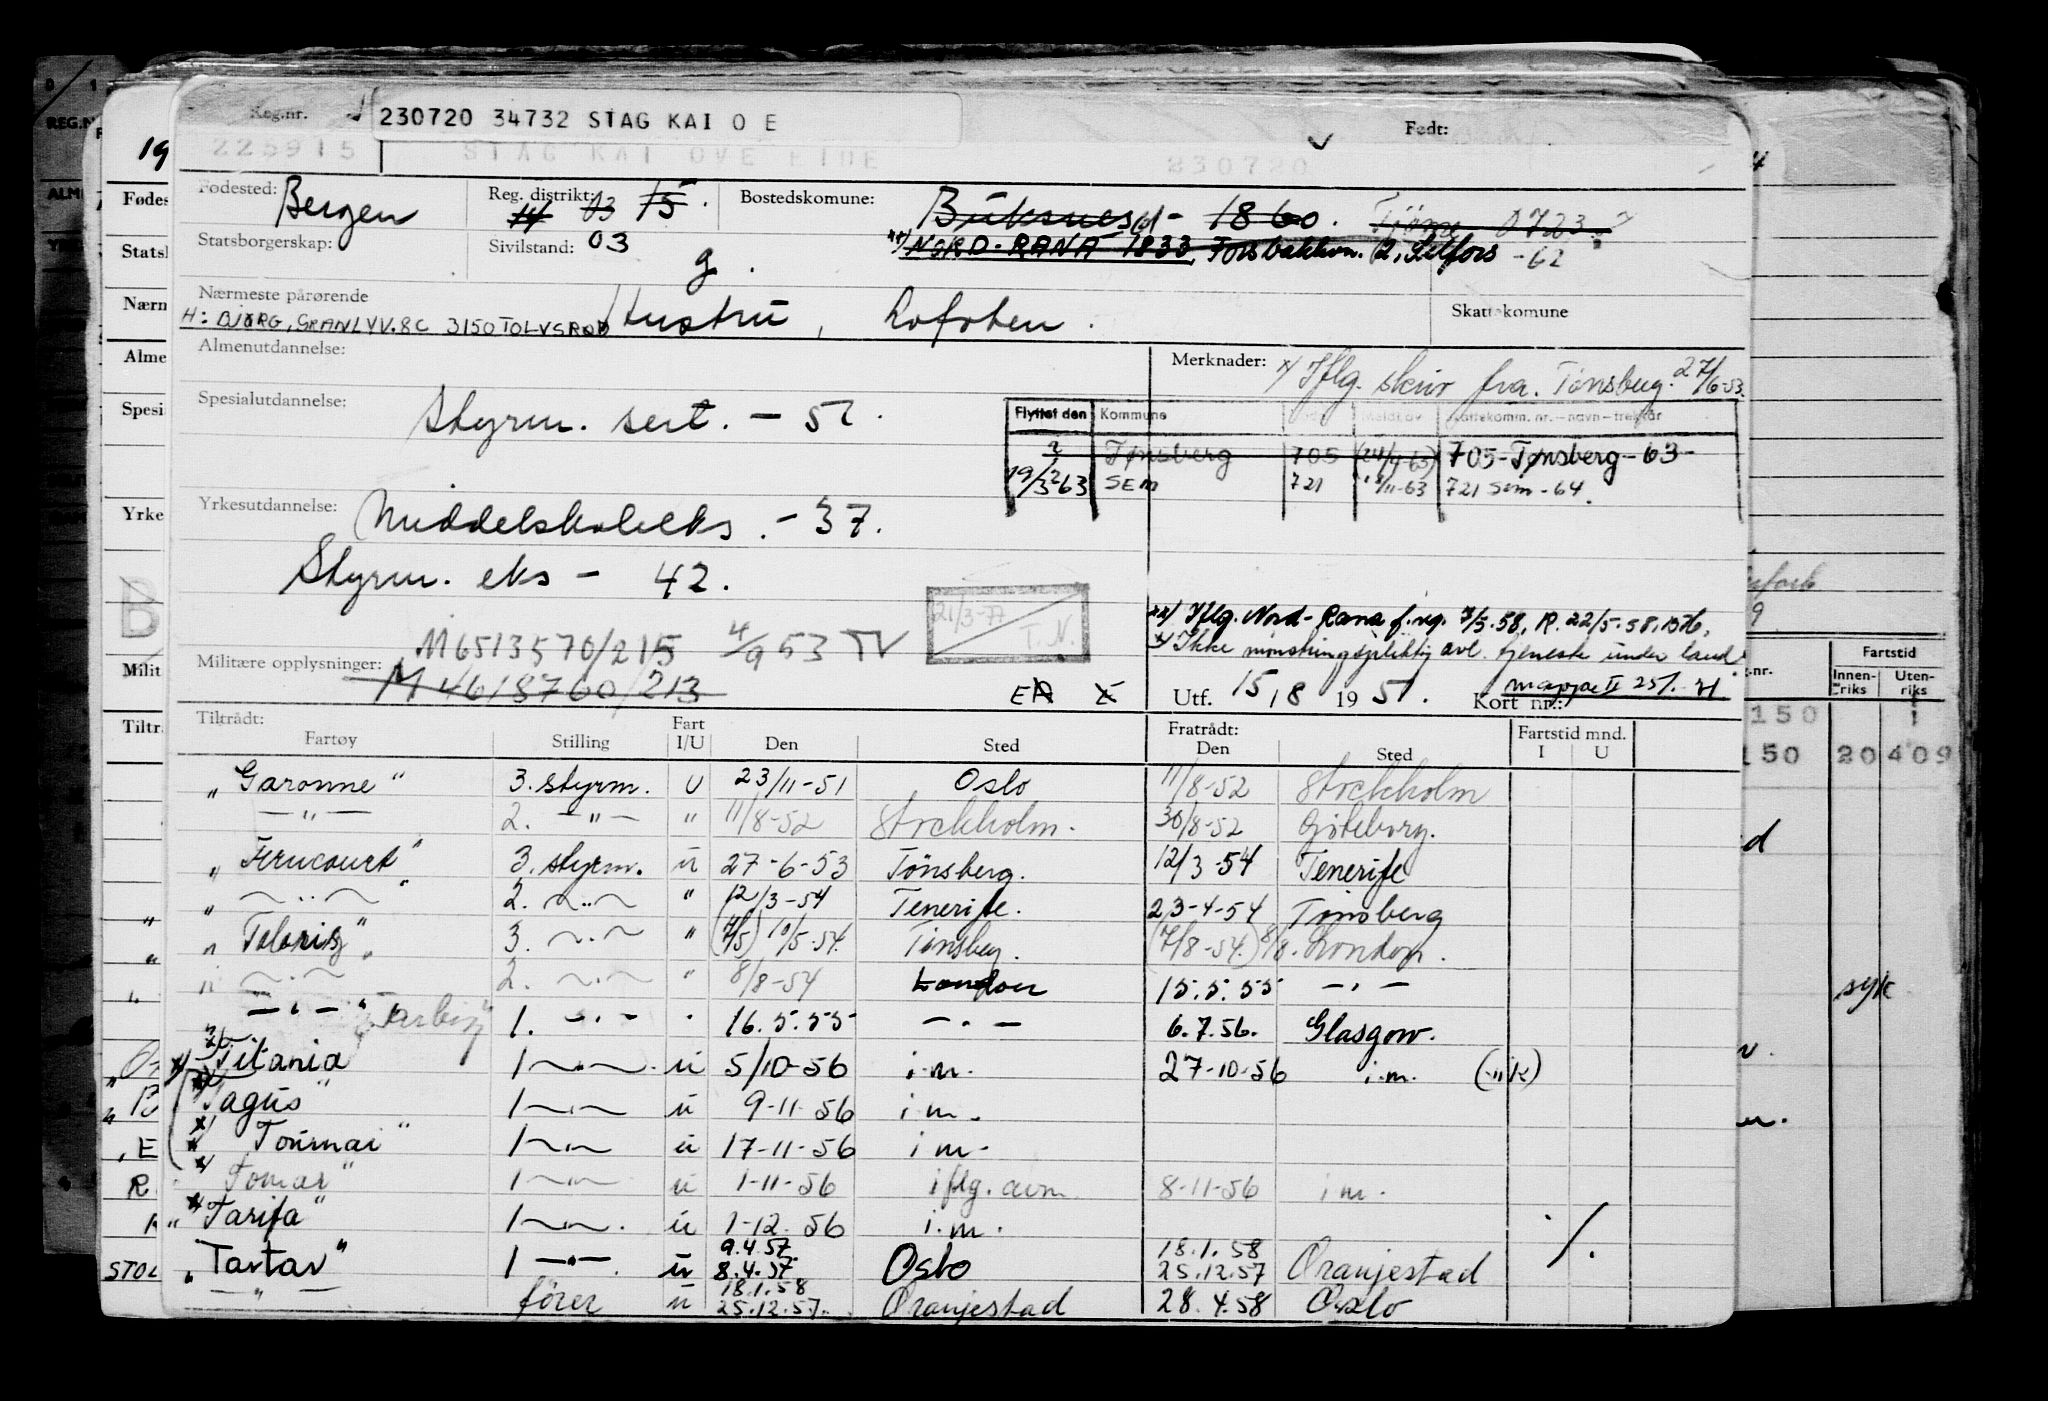 Reg.nr. 230720 34732 STAG KAI O E Født:
225915 STAG KAI OVE EIDE 230720
Fødested: Bergen Reg. distrikt: 14 03 15. Bostedskomune: Buksnes - 1860. Tjöme 0723
Statsborgerskap: Sivilstand: 03 g. xx) NORD-RANA 1833, Forsbakkvn. 12, Selfors -62
Nærmeste pårørende Hustru, Lofoten. Skattekomune
H: BJØRG, GRANLVV. 8C 3150 TOLVSRØD
Almenutdannelse: Merknader: x) Iflg. skriv fra Tönsberg. 27/6-53.
Spesialutdannelse: Styrm. sert. - 52.
Flyttet den Kommune Skattekomm. nr. – navn – trekkår
Tønsberg 705 (24/4-63) 705-Tønsberg-63-
19/3 63 SEM 721 18/11-63 721 Sem - 64.
Yrkesutdannelse: Middelskoleeks. - 37.
Styrm. eks - 42.
21/3-77 T.N.
xx) Iflg. Nord-Rana f.reg. 7/5.58, R. 22/5.58, 1576,
x) Ikke mønstringspliktig avl. tjeneste under land
M6513570/215 4/9 53 TV
Militære opplysninger: M 4618760/213
Utf. 15/8 1951. Kort nr.: mappe II 25/. 71
Tiltrådt: Fart Fratrådt: Fartstid mnd.
Fartøy Stilling I/U Den Sted Den Sted I U
„Garonne" 3. styrm. U 23/11-51 Oslo 11/8-52 Stockholm
— " — 2. — " — " 11/8-52 Stockholm. 30/8-52 Göteborg.
„Ferncourt" 3. styrm. u 27-6-53 Tönsberg. 12/3-54 Tenerife
„ — " — " 2. — " — " 12/3-54 Tenerife. 23-4-54 Tønsberg
„ Toloris" 3. — " — " (7/5) 10/5-54. Tønsberg. (7/8-54.) 8/8. London.
— " — 2. — " — " 8/8-54 London 15.5.55 — " —
— " — 1. — " — " 16.5.55 — " — 6.7.56. Glasgow.
x) Titania 1 — " — u 5/10-56 i.m. 27-10-56 i.m.
x) Tagus" 1 — " — u 9-11-56 i m.
x) Tournai" 1 — " — u 17-11-56 i m.
x) Tomar" 1 — " — u 1-11-56 iflg. avm. 8-11-56 i m.
„ x Tarifa" 1 — " — u 1-12-56 i.m. ./.
„Tartar" 1 — " — u 9.4.57. 8.4.57 Oslo 18.1.58 25.12.57 Oranjestad
— " — förer u 18.1.58 25.12.57. Oranjestad 28.4.58 Oslo
Fartstid
Innenriks Utenriks
150
150 20 409
syk